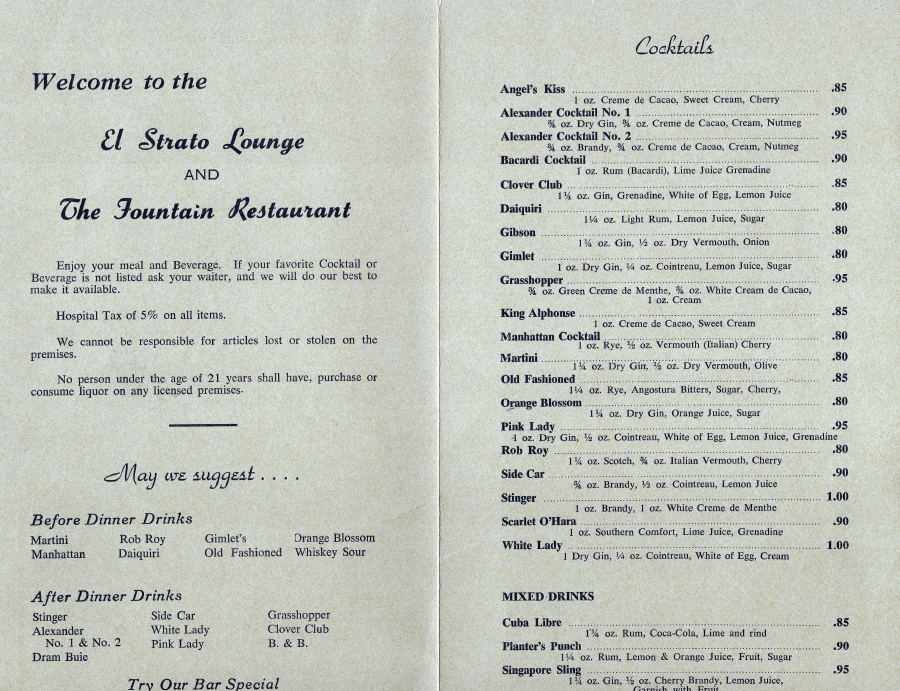 Welcome to the
El Strato Lounge
AND
The Fountain Restaurant
Enjoy your meal and Beverage. If your favorite Cocktail or
Beverage is not listed ask your waiter, and we will do our best to
make it available.
Hospital Tax of 5% on all items.
We cannot be responsible for articles lost or stolen on the
premises.
No person under the age of 21 years shall have, purchase or
consume liquor on any licensed premises.
May we suggest . . . .
Before Dinner Drinks
Martini Rob Roy Gimlet's Orange Blossom
Manhattan Daiquiri Old Fashioned Whiskey Sour
After Dinner Drinks
Stinger Side Car Grasshopper
Alexander White Lady Clover Club
No. 1 & No. 2 Pink Lady B. & B.
Dram Buie
Try Our Bar Special
Cocktails
Angel's Kiss .85
1 oz. Creme de Cacao, Sweet Cream, Cherry
Alexander Cocktail No. 1 .90
¾ oz. Dry Gin, ¾ oz. Creme de Cacao, Cream, Nutmeg
Alexander Cocktail No. 2 .95
¾ oz. Brandy, ¾ oz. Creme de Cacao, Cream, Nutmeg
Bacardi Cocktail .90
1 oz. Rum (Bacardi), Lime Juice Grenadine
Clover Club .85
1¼ oz. Gin, Grenadine, White of Egg, Lemon Juice
Daiquiri .80
1¼ oz. Light Rum, Lemon Juice, Sugar
Gibson .80
1¼ oz. Gin, ½ oz. Dry Vermouth, Onion
Gimlet .80
1 oz. Dry Gin, ¼ oz. Cointreau, Lemon Juice, Sugar
Grasshopper .95
¾ oz. Green Creme de Menthe, ¾ oz. White Cream de Cacao,
1 oz. Cream
King Alphonse .85
1 oz. Creme de Cacao, Sweet Cream
Manhattan Cocktail .80
1 oz. Rye, ½ oz. Vermouth (Italian) Cherry
Martini .80
1¼ oz. Dry Gin, ½ oz. Dry Vermouth, Olive
Old Fashioned .85
1¼ oz. Rye, Angostura Bitters, Sugar, Cherry,
Orange Blossom .80
1¼ oz. Dry Gin, Orange Juice, Sugar
Pink Lady .95
1 oz. Dry Gin, ½ oz. Cointreau, White of Egg, Lemon Juice, Grenadine
Rob Roy .80
1¼ oz. Scotch, ¾ oz. Italian Vermouth, Cherry
Side Car .90
¾ oz. Brandy, ½ oz. Cointreau, Lemon Juice
Stinger 1.00
1 oz. Brandy, 1 oz. White Creme de Menthe
Scarlet O'Hara .90
1 oz. Southern Comfort, Lime Juice, Grenadine
White Lady 1.00
1 Dry Gin, ¼ oz. Cointreau, White of Egg, Cream
MIXED DRINKS
Cuba Libre .85
1¼ oz. Rum, Coca-Cola, Lime and rind
Planter's Punch .90
1¼ oz. Rum, Lemon & Orange Juice, Fruit, Sugar
Singapore Sling .95
1¼ oz. Gin, ½ oz. Cherry Brandy, Lemon Juice,
Garnish with Fruit